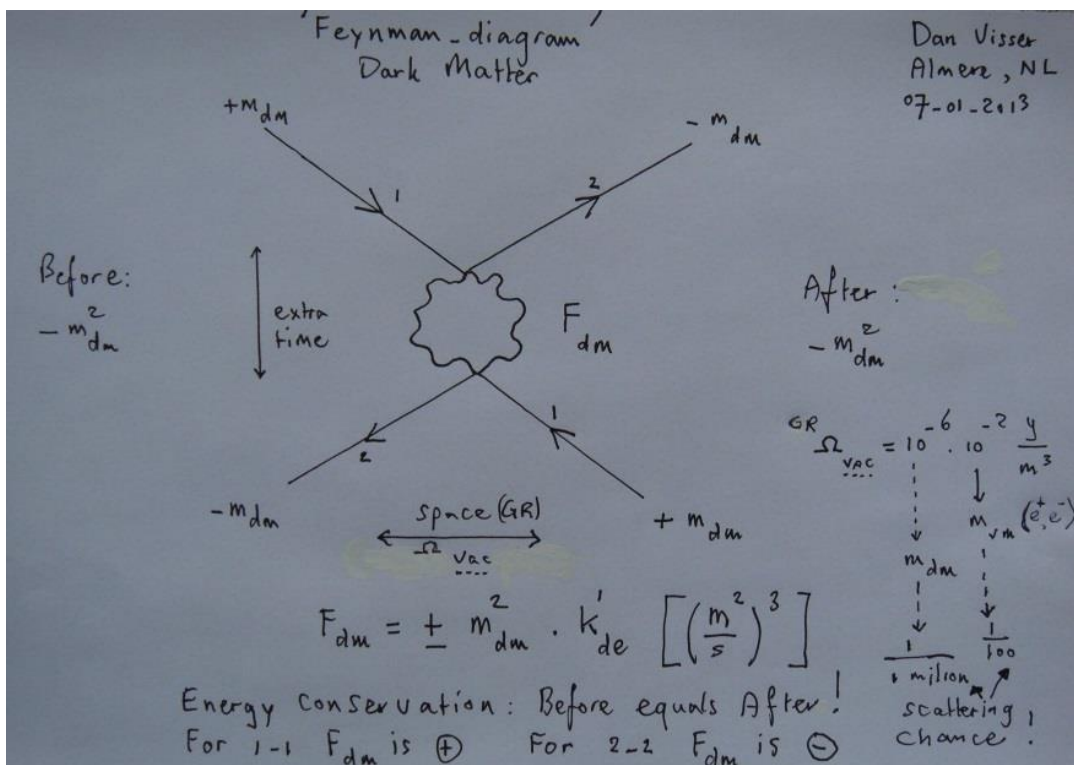 'Feynman-diagram'
Dark Matter
Dan Visser
Almere, NL
07-01-2013
+m_dm
- m_dm
1
2
Before:
- m²_dm
extra
time
F_dm
After:
- m²_dm
2
1
- m_dm
+ m_dm
space (GR)
Ω_vac
GR Ω_VAC = 10⁻⁶ . 10⁻² y/m³
m_dm
m_vm (e⁺,e⁻)
1/1 milion
1/100
scattering
chance!
F_dm = ± m²_dm . k'_de [(m²/s)³]
Energy conservation: Before equals After!
For 1-1 F_dm is ⊕ For 2-2 F_dm is ⊖